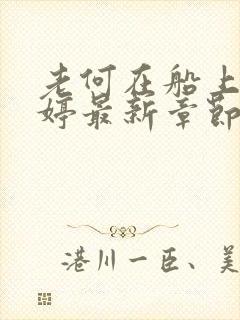 老何在船上
婷最新章節
港川一臣、美